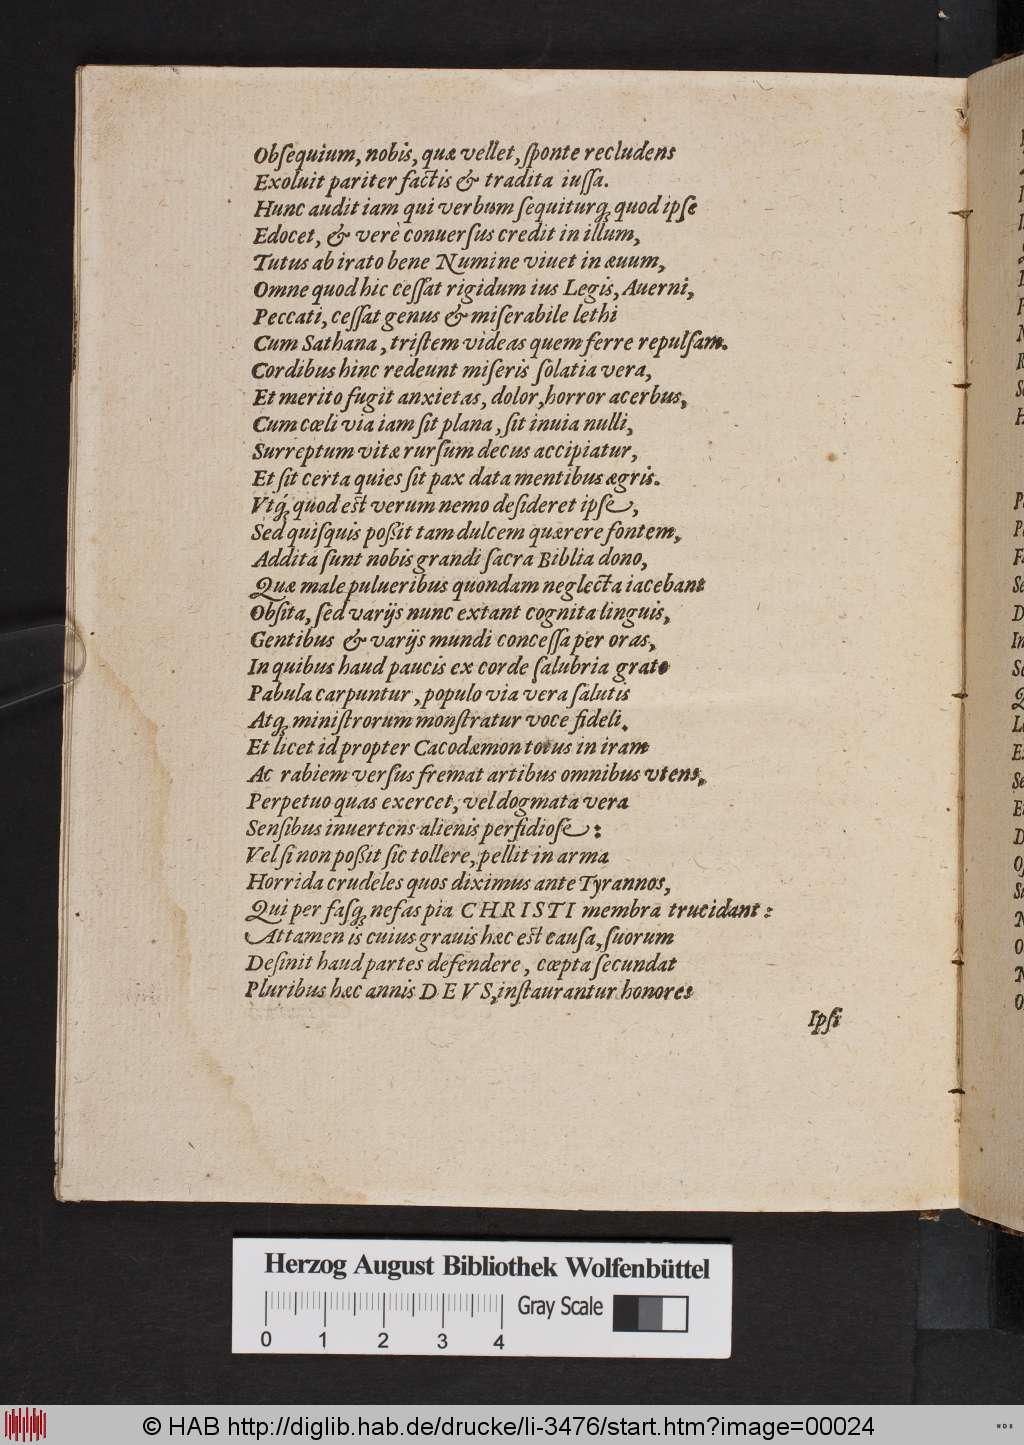 Obſequium, nobis, quæ vellet, ſponte recludens
Exoluit pariter factis & tradita iuſſa.
Hunc audit iam qui verbum ſequiturq́; quod ipſe
Edocet, & verè conuerſus credit in illum,
Tutus ab irato bene Numine viuet in æuum,
Omne quod hic ceſſat rigidum ius Legis, Auerni,
Peccati, ceſſat genus & miſerabile lethi
Cum Sathana, triſtem videas quem ferre repulſam.
Cordibus hinc redeunt miſeris ſolatia vera,
Et merito fugit anxietas, dolor, horror acerbus,
Cum cœli via iam ſit plana, ſit inuia nulli,
Surreptum vitæ rurſum decus accipiatur,
Et ſit certa quies ſit pax data mentibus ægris.
Vtq́; quod est verum nemo deſideret ipſe,
Sed quiſquis poßit tam dulcem quærere fontem,
Addita ſunt nobis grandi ſacra Biblia dono,
Quæ male pulueribus quondam neglecta iacebant
Obſita, ſed varijs nunc extant cognita linguis,
Gentibus & varijs mundi conceſſa per oras,
In quibus haud paucis ex corde ſalubria grato
Pabula carpuntur, populo via vera ſalutis
Atq; miniſtrorum monſtratur voce fideli.
Et licet id propter Cacodæmon totus in iram
Ac rabiem verſus fremat artibus omnibus vtens,
Perpetuo quas exercet, vel dogmata vera
Senſibus inuertens alienis perfidioſe:
Vel ſi non poßit ſic tollere, pellit in arma
Horrida crudeles quos diximus ante Tyrannos,
Qui per faſq; nefas pia CHRISTI membra trucidant:
Attamen is cuius grauis hæc est cauſa, ſuorum
Deſinit haud partes defendere, cœpta ſecundat
Pluribus hæc annis DEVS, inſtaurantur honores
Ipſi
Herzog August Bibliothek Wolfenbüttel
Gray Scale
0 1 2 3 4
© HAB http://diglib.hab.de/drucke/li-3476/start.htm?image=00024